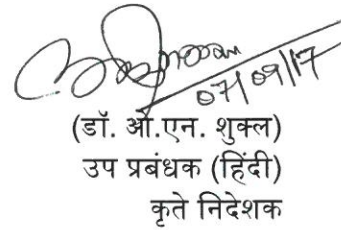 07/09/17
(डॉ. ओ.एन. शुक्ल)
उप प्रबंधक (हिंदी)
कृते निदेशक